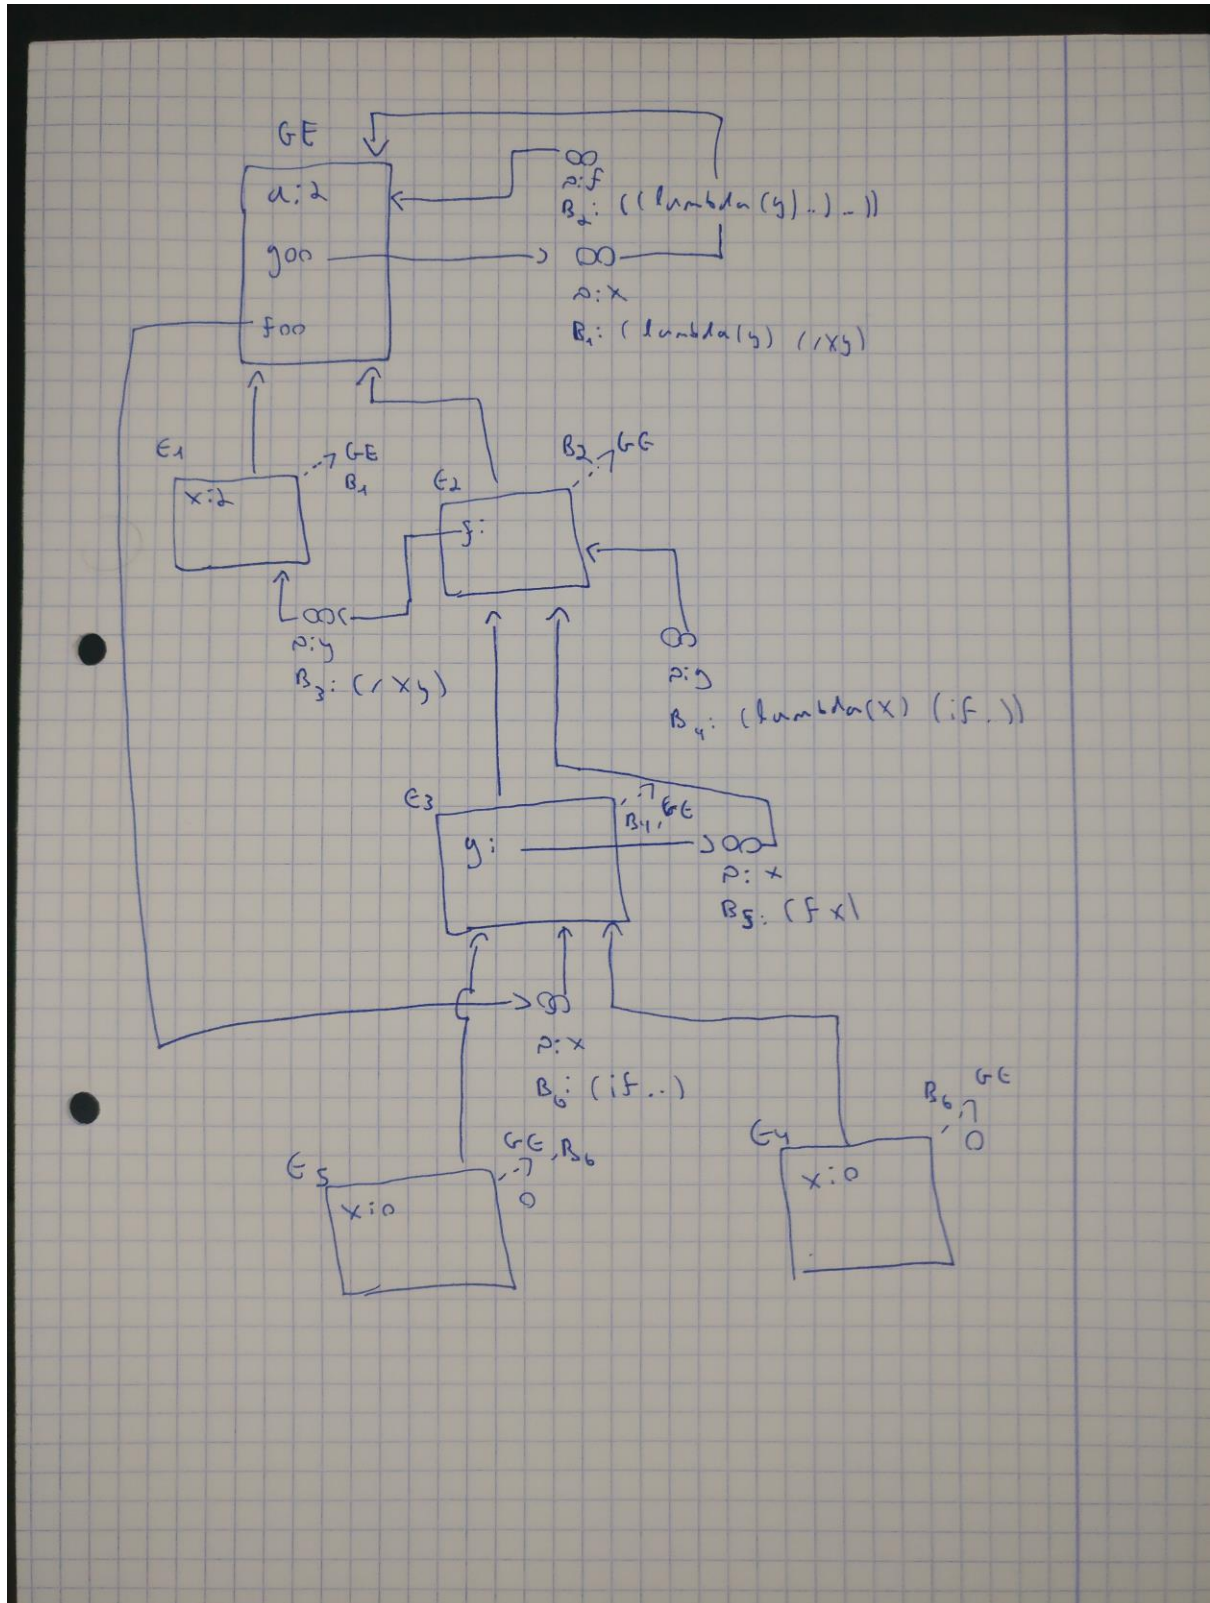 GE
a:2
p:f
B2: ((lambda(y)..)..))
goo
p:x
foo
B1: (lambda(y) (/xy)
E1
GE
B1
x:2
E2
B2
GE
f:
p:y
B3: (/ xy)
p:g
B4: (lambda(x) (if.))
E3
B4, GE
g:
p:x
B5: (f x)
p:x
B6: (if..)
E5
GE, B6
0
x:0
E4
B6
GE
0
x:0